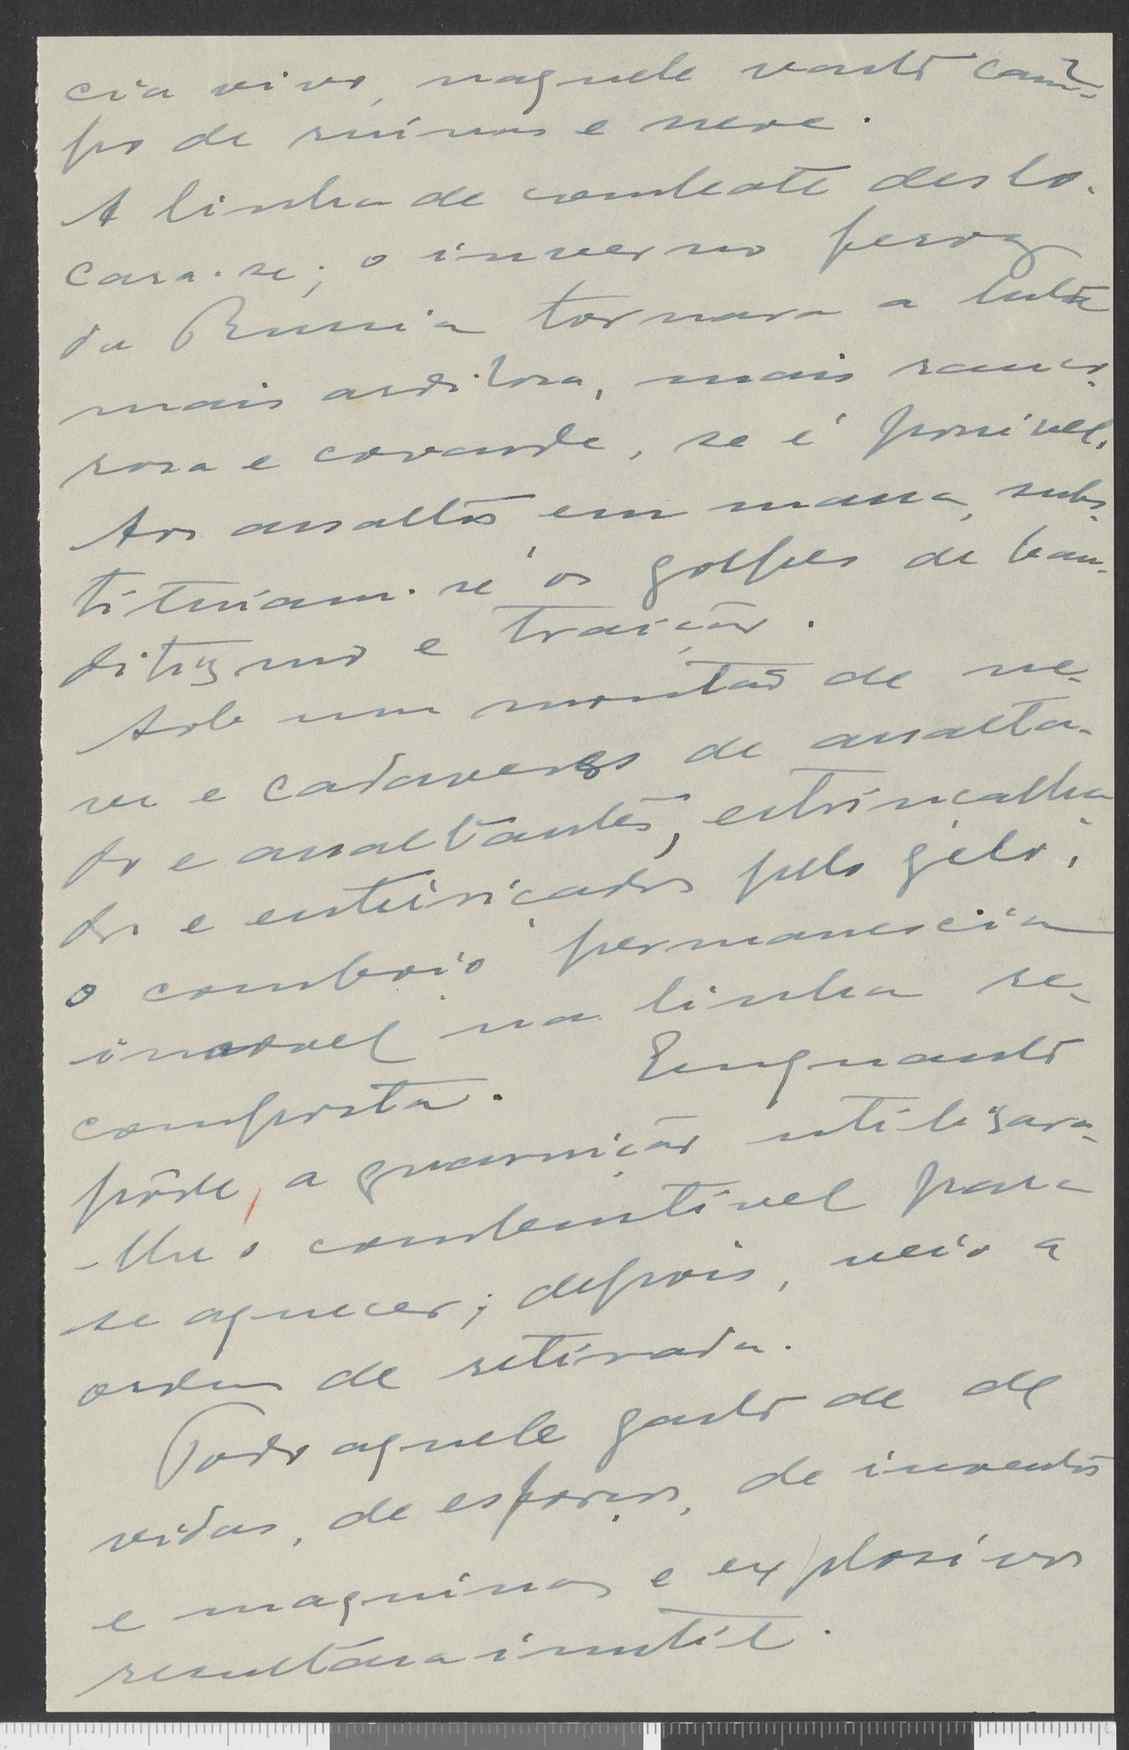 cia vivo, naquele vasto cam-
po de ruinas e neve.
A linha de combate deslo-
cara-se; o inverno feroz
da Russia tornara a luta
mais ardilosa, mais ranco-
rosa e covarde, se é possivel.
Aos assaltos em massa, subs-
tituiam-se os golpes de ban-
ditismo e traição.
Sob um montão de ne-
ve e cadaveres de assalta-
do e assaltantes, estrincalha
dos e enteiriçados pelo gêlo,
o comboio permanescia
imovel na linha re-
composta. Emquanto
pôde, a guarnição utilizara-
-lhe o combustivel para
se aquecer; depois, veio a
ordem de retirada.
Todo aquele gasto de de
vidas, de esforços, de inventos
e maquinas e explosivos
resultara inutil.